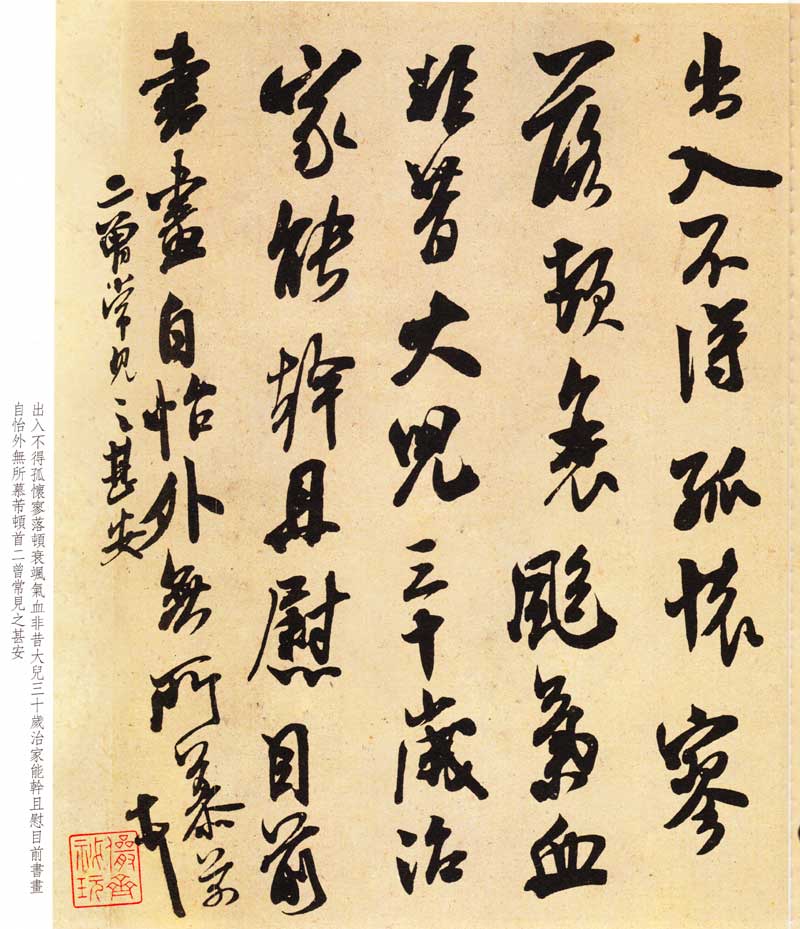 出入不得孤懷寥
落頓衰颯氣血
非昔大兒三十歲治
家能幹且慰目前
書畫自怡外無所慕芾
頓首
二曾常見之甚安
儼齊
祕玩
出入不得孤懷寥落頓衰颯氣血非昔大兒三十歲治家能幹且慰目前書畫
自怡外無所慕芾頓首二曾常見之甚安